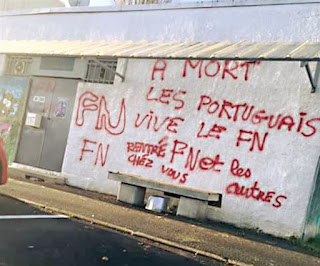 A MORT
LES PORTUGUAIS
VIVE LE FN
FN
FN
RENTRÉ FN et les
CHEZ VOUS autres